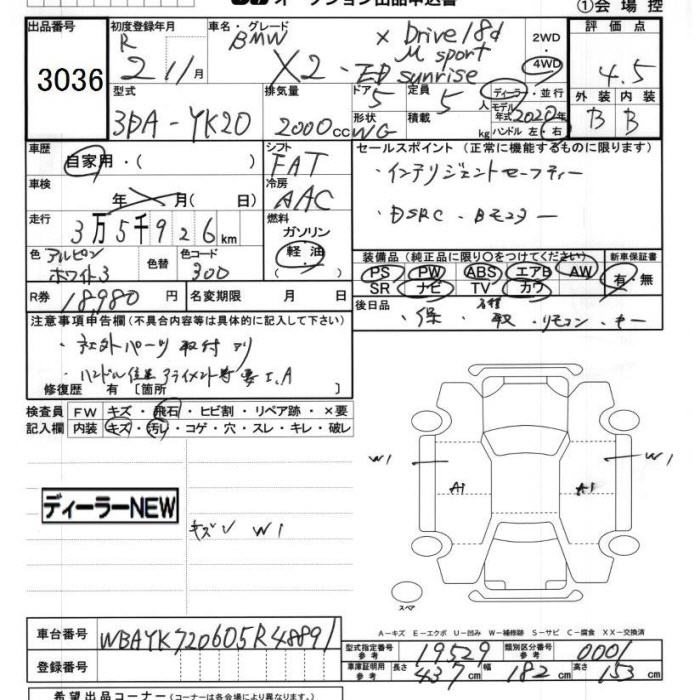 ①会場控
出品番号
3036
初度登録年月
R
2 11月
車名・グレード
BMW
X2
xDrive18d
M sport
EDサンライズ sunrise
2WD
4WD
評価点
4.5
型式
3DA-YK20
排気量
2000cc
ドア
5
形状
WG
定員
5人
積載
kg
ディーラー・並行
モデル年式 2020年
ハンドル 左・右
外装 内装
B B
車歴
自家用・( )
車検
年 月( 日)
走行
3万5千926km
色
アルピン
ホワイト3
色替
色コード
300
シフト
FAT
冷房
AAC
燃料
ガソリン
軽油
・( )
R券 18,980円
名変期限 月 日
セールスポイント(正常に機能するものに限ります)
・インテリジェントセーフティー
・DSRC
装備品(純正品に限り○をつけてください)
PS PW ABS エアB AW
SR ナビ TV カワ
新車保証書
有・無
後日品
・保 ・取 ・リモコン ・キー
注意事項申告欄(不具合内容等は具体的に記入して下さい)
・社外パーツ取付アリ
・ハンドル
修復歴 有 [箇所 ]
検査員 FW キズ・飛石・ヒビ割・リペア跡・×要
記入欄 内装 キズ・汚レ・コゲ・穴・スレ・キレ・破レ
ディーラーNEW
キズ W1
W1
A1
A1
W1
スペア
A-キズ E-エクボ U-凹み W-補修跡 S-サビ C-腐食 XX-交換済
車台番号 WBAYK720605R48891
登録番号
型式指定番号 参考 19529
類別区分番号 参考 0001
車庫証明用 参考 長さ 437cm 幅 182cm 高さ 153cm
希望出品コーナー(コーナーは各会場により異なります。)